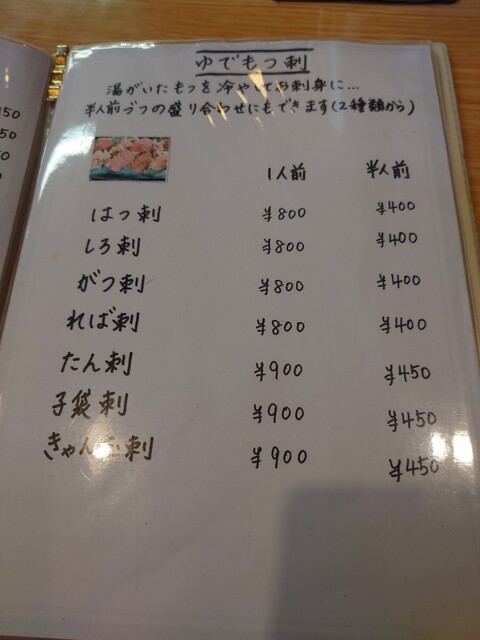 ゆでもつ刺
湯がいたもつを冷やしてお刺身に…
半人前づつの盛り合わせにもできます(2種類から)
1人前 半人前
はつ刺 ¥800 ¥400
しろ刺 ¥800 ¥400
がつ刺 ¥800 ¥400
ればー刺 ¥800 ¥400
たん刺 ¥900 ¥450
子袋刺 ¥900 ¥450
きゃん玉刺 ¥900 ¥450
50
50